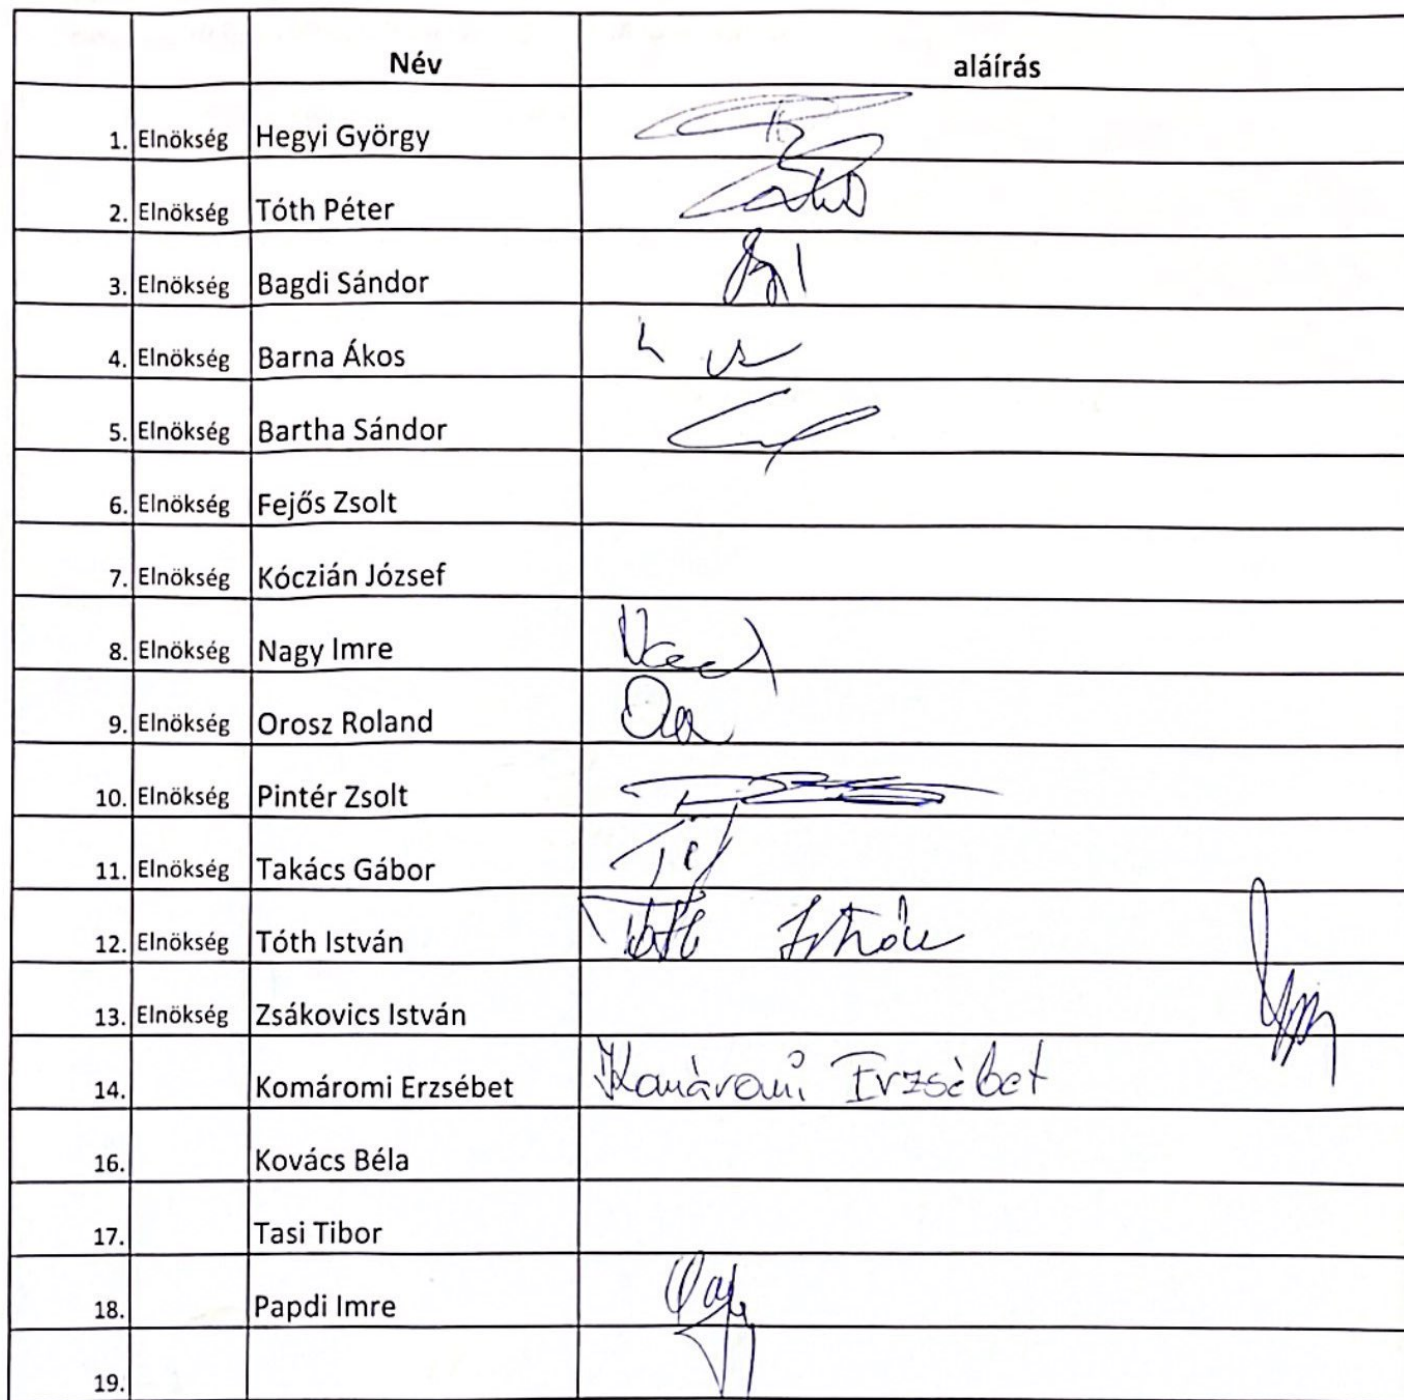 Név aláírás
1. Elnökség Hegyi György
2. Elnökség Tóth Péter
3. Elnökség Bagdi Sándor
4. Elnökség Barna Ákos
5. Elnökség Bartha Sándor
6. Elnökség Fejős Zsolt
7. Elnökség Kóczián József
8. Elnökség Nagy Imre
9. Elnökség Orosz Roland
10. Elnökség Pintér Zsolt
11. Elnökség Takács Gábor
12. Elnökség Tóth István Tóth István
13. Elnökség Zsákovics István
14. Komáromi Erzsébet Komáromi Erzsébet
16. Kovács Béla
17. Tasi Tibor
18. Papdi Imre
19.